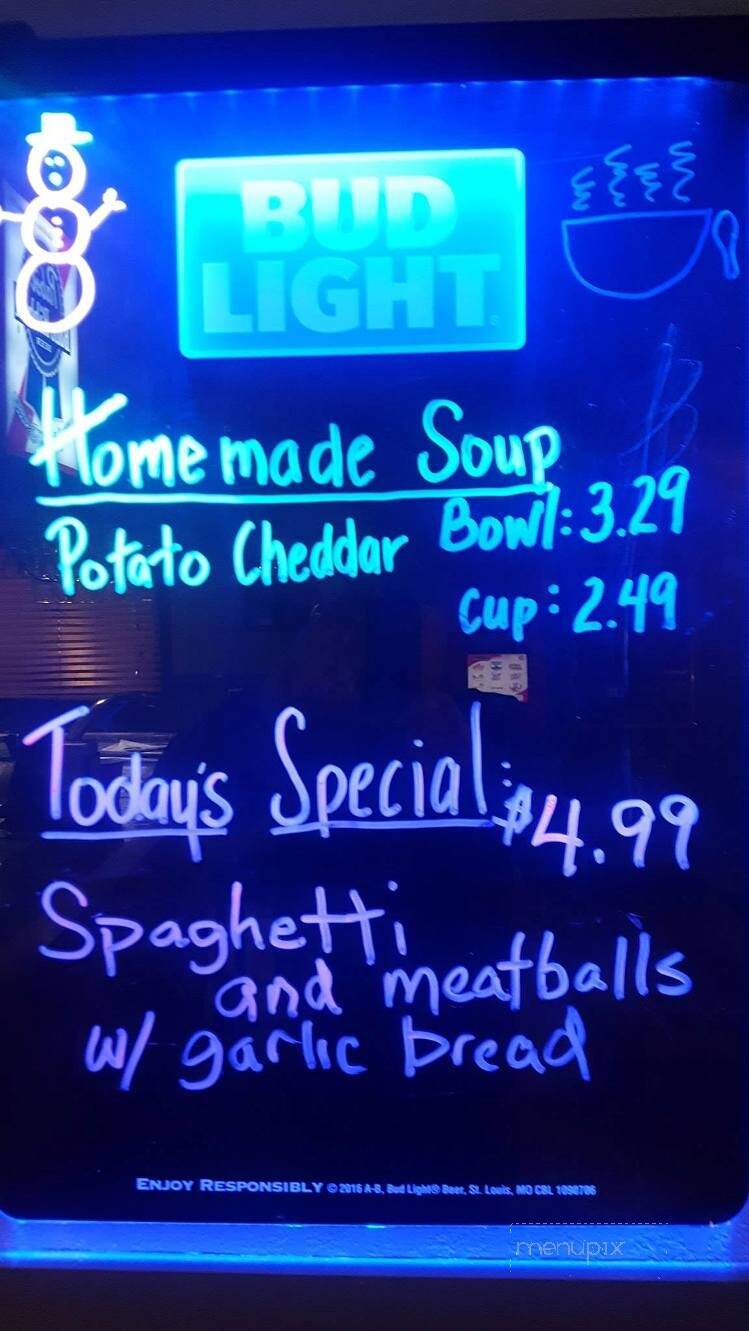 BUD
LIGHT
Homemade Soup
Potato Cheddar Bowl: 3.29
cup: 2.49
Today's Special: $4.99
Spaghetti
and meatballs
w/ garlic bread
ENJOY RESPONSIBLY © 2016 A-B, Bud Light® Beer, St. Louis, MO CBL 1090706
menupix